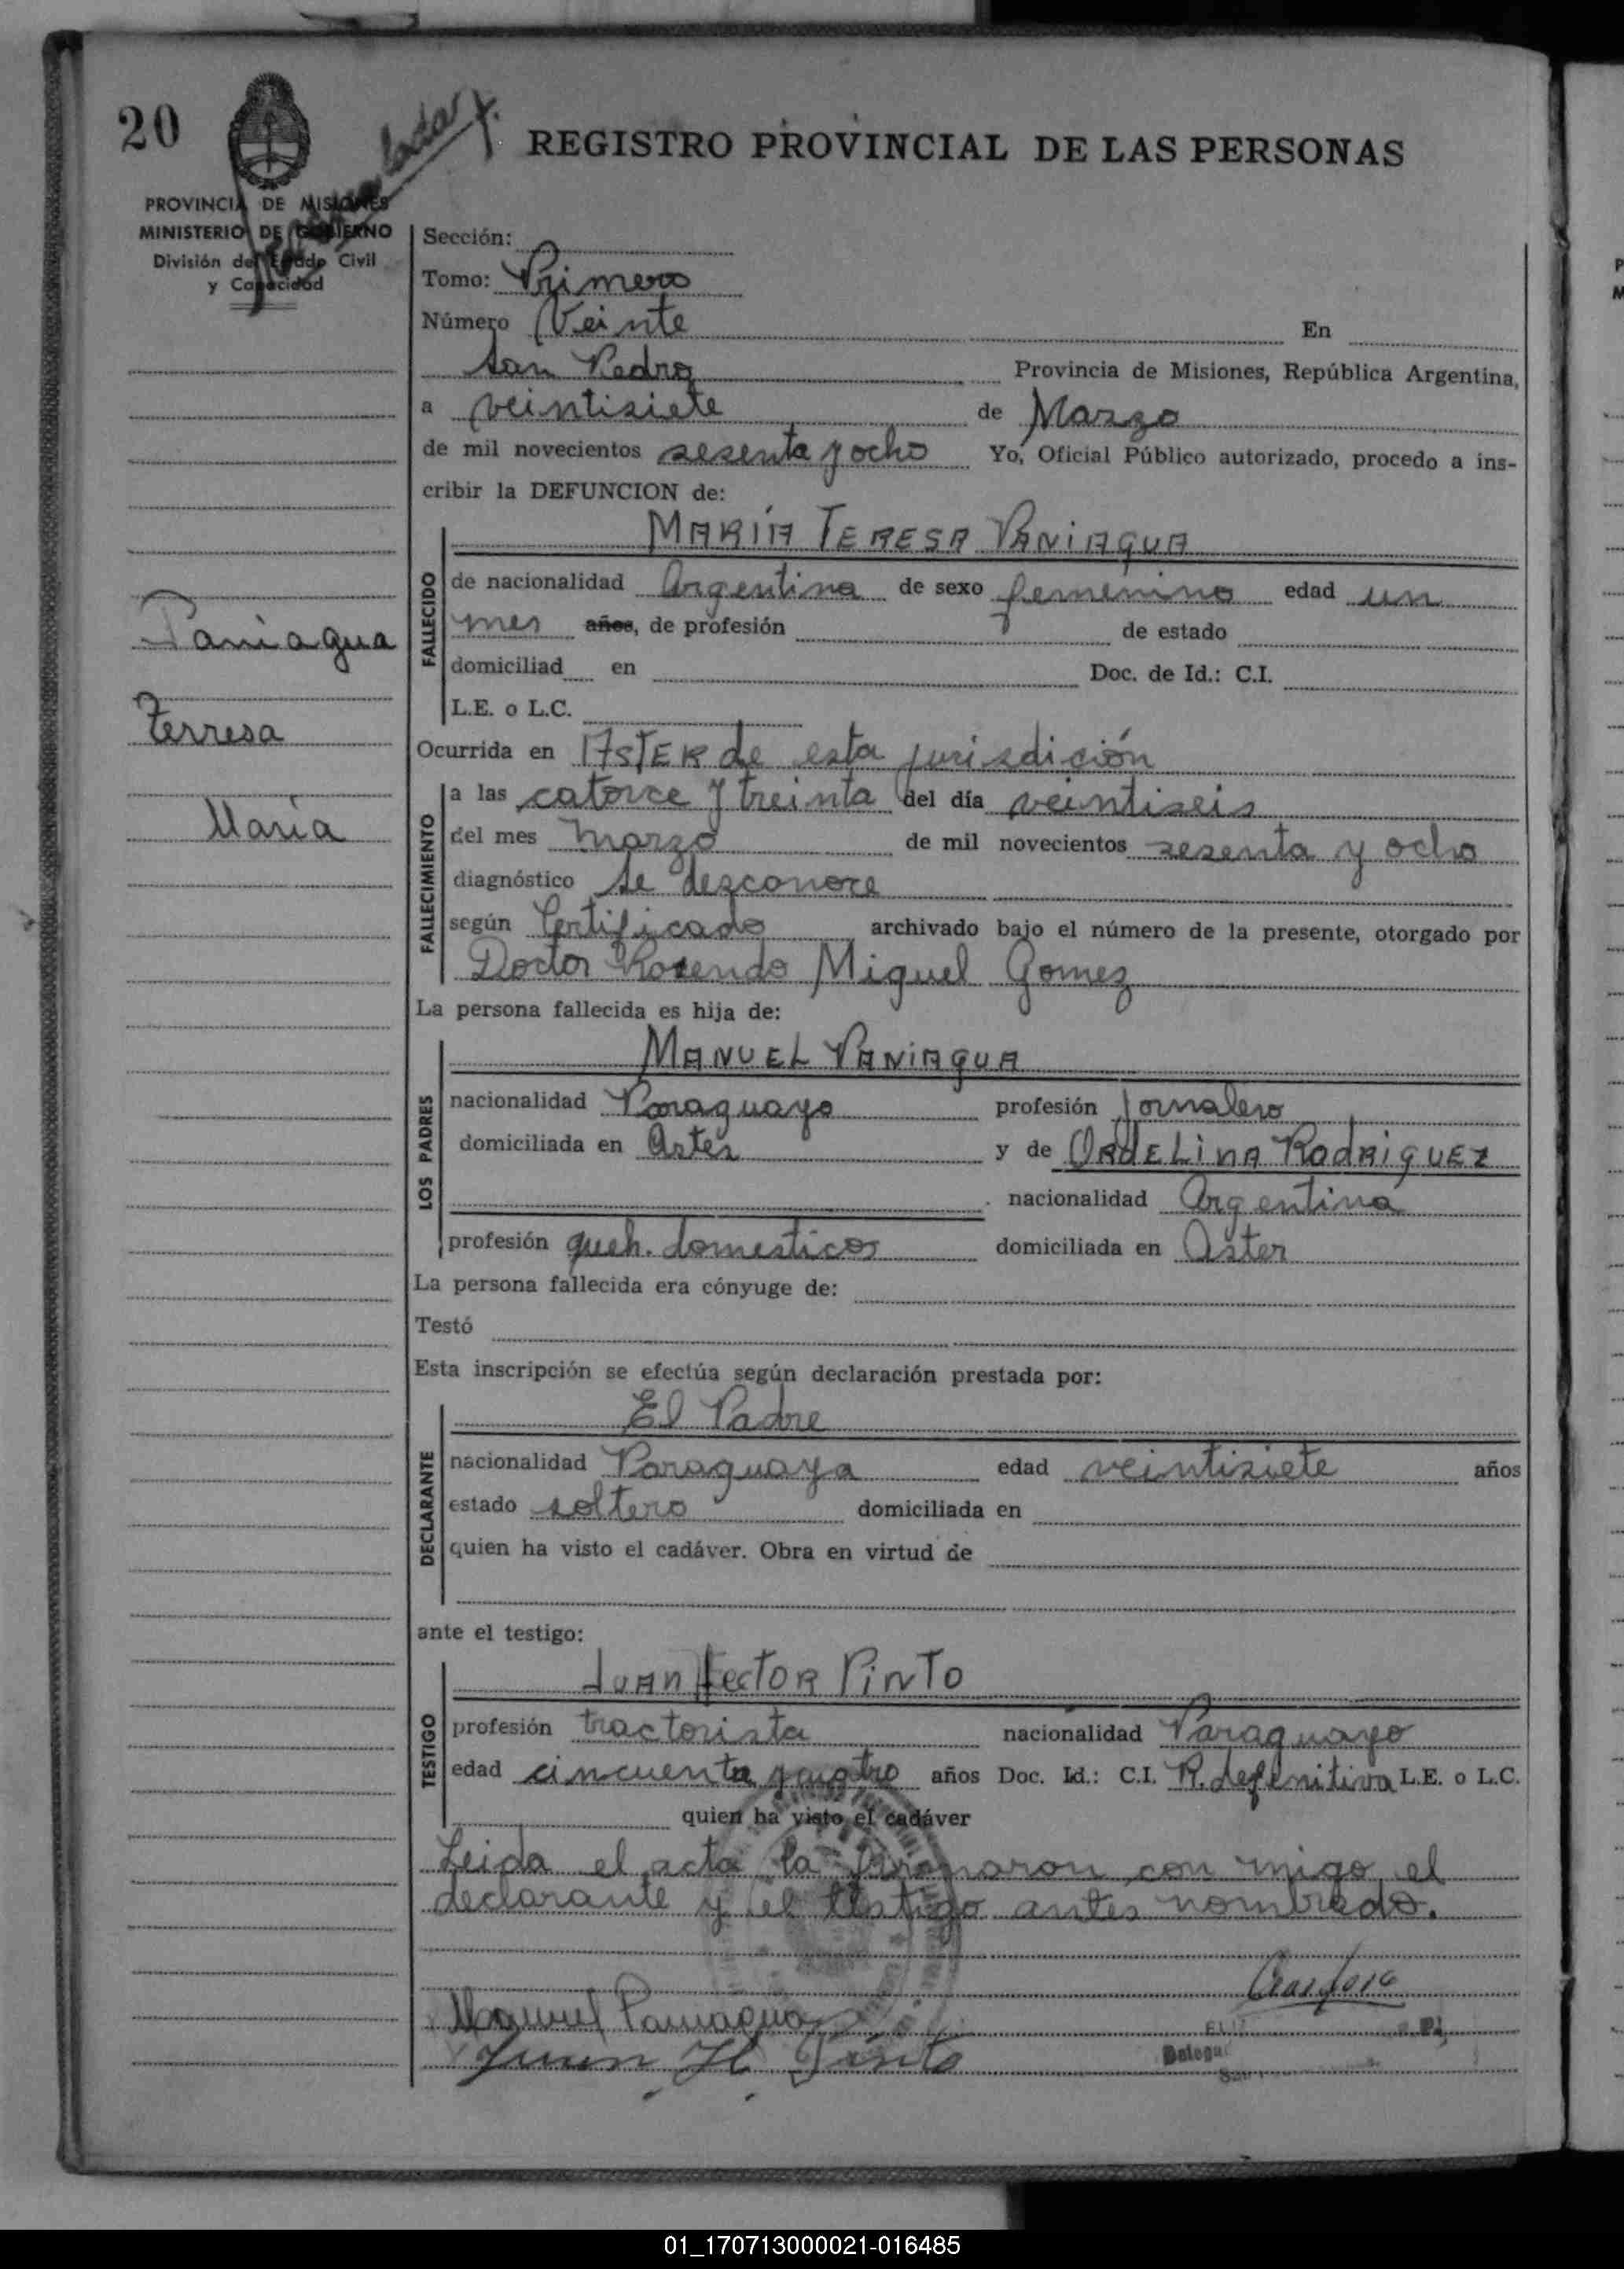 20
REGISTRO PROVINCIAL DE LAS PERSONAS
PROVINCIA DE MISIONES
MINISTERIO DE GOBIERNO
División del Estado Civil
y Capacidad
Sección:
Tomo: Primero
Número Veinte En
San Pedro Provincia de Misiones, República Argentina,
a veintisiete de Marzo
de mil novecientos sesenta y ocho Yo, Oficial Público autorizado, procedo a ins-
cribir la DEFUNCION de:
MARÍA TERESA PANIAGUA
FALLECIDO
de nacionalidad Argentina de sexo femenino edad un
mes años, de profesión de estado
domiciliad en Doc. de Id.: C.I.
L.E. o L.C.
Paniagua
Terresa
María
Ocurrida en ASTER de esta jurisdición
FALLECIMIENTO
a las catorce y treinta del día veintiseis
del mes marzo de mil novecientos sesenta y ocho
diagnóstico se desconoce
según Certificado archivado bajo el número de la presente, otorgado por
Doctor Rosendo Miguel Gomez
La persona fallecida es hija de:
MANUEL PANIAGUA
LOS PADRES
nacionalidad Paraguayo profesión Jornalero
domiciliada en Aster y de ORDELINA RODRIGUEZ
nacionalidad Argentina
profesión queh. domesticos domiciliada en Aster
La persona fallecida era cónyuge de:
Testó
Esta inscripción se efectúa según declaración prestada por:
El Padre
DECLARANTE
nacionalidad Paraguaya edad veintisiete años
estado soltero domiciliada en
quien ha visto el cadáver. Obra en virtud de
ante el testigo:
JUAN HECTOR PINTO
TESTIGO
profesión tractorista nacionalidad Paraguayo
edad cincuenta y cuatro años Doc. Id.: C.I. R. defenitiva L.E. o L.C.
quien ha visto el cadáver
Leida el acta la firmaron con migo el
declarante y el testigo antes nombrado.
Manuel Paniagua
Juan H Pinto
01_170713000021-016485